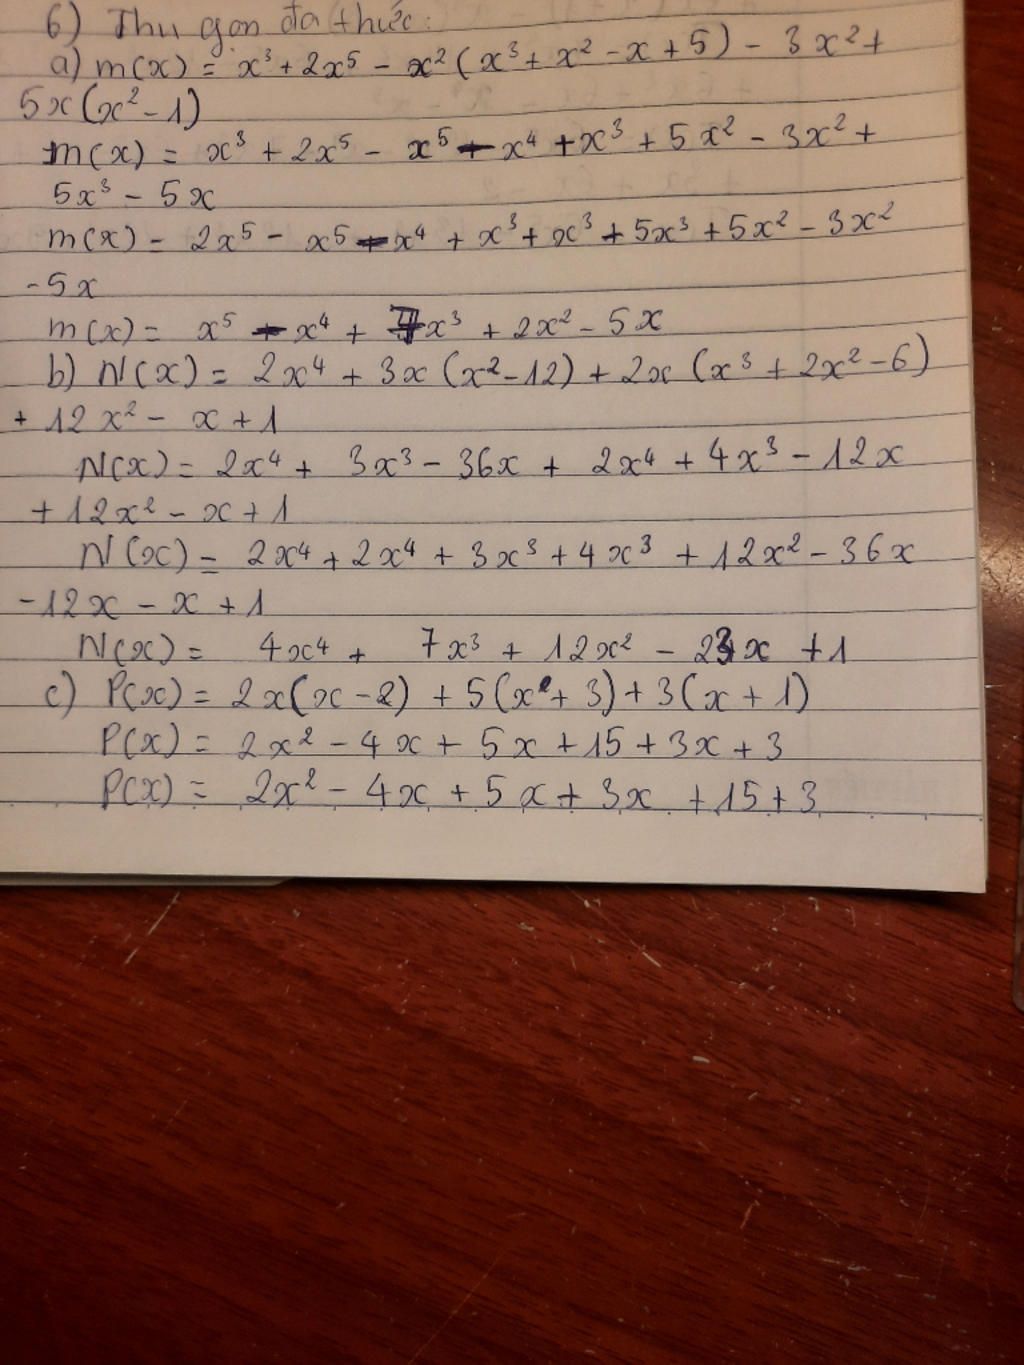 6) Thu gọn đa thức:
a) m(x) = x³ + 2x⁵ - x² (x³ + x² - x + 5) - 3x² +
5x(x² - 1)
m(x) = x³ + 2x⁵ - x⁵ - x⁴ + x³ + 5x² - 3x² +
5x³ - 5x
m(x) = 2x⁵ - x⁵ - x⁴ + x³ + x³ + 5x³ + 5x² - 3x²
-5x
m(x) = x⁵ - x⁴ + 7x³ + 2x² - 5x
b) N(x) = 2x⁴ + 3x (x² - 12) + 2x (x³ + 2x² - 6)
+ 12x² - x + 1
N(x) = 2x⁴ + 3x³ - 36x + 2x⁴ + 4x³ - 12x
+ 12x² - x + 1
N(x) = 2x⁴ + 2x⁴ + 3x³ + 4x³ + 12x² - 36x
-12x - x + 1
N(x) = 4x⁴ + 7x³ + 12x² - x + 1
c) P(x) = 2x(x - 2) + 5(x + 3) + 3(x + 1)
P(x) = 2x² - 4x + 5x + 15 + 3x + 3
P(x) = 2x² - 4x + 5x + 3x + 15 + 3